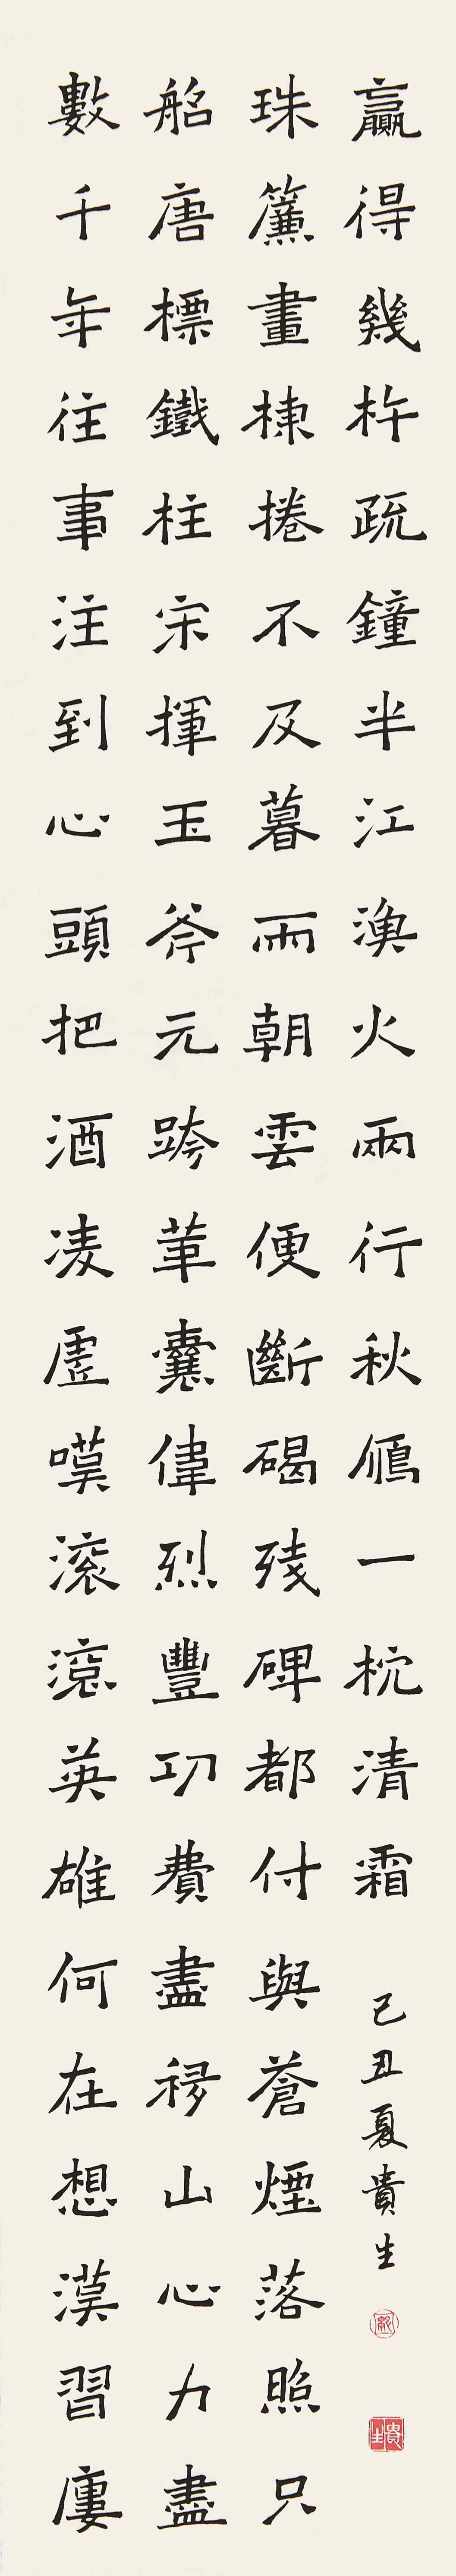 數千年往事注到心頭把酒凌虛嘆滾滾英雄何在想漢習廔
船唐標鐵柱宋揮玉斧元跨革囊偉烈豐功費盡移山心力盡
珠簾畫棟捲不及暮雨朝雲便斷碣殘碑都付與蒼煙落照只
贏得幾杵疏鐘半江漁火兩行秋鴈一枕清霜
己丑夏貴生
貴生